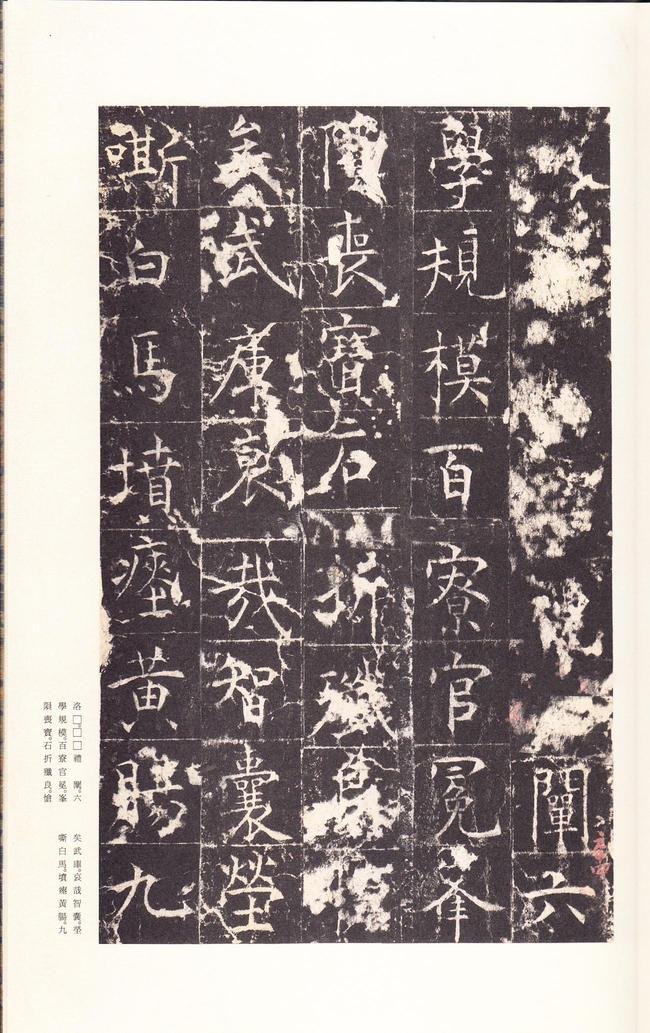 闡六
學規模百寮官冕峯
隕喪寶石折殲良愴
矣武庫哀哉智囊瑩
嘶白馬墳瘞黃腸九
洛□□□禮闡六
學規模百寮官冕峯
隕喪寶石折殲良愴
矣武庫哀哉智囊瑩
嘶白馬墳瘞黃腸九